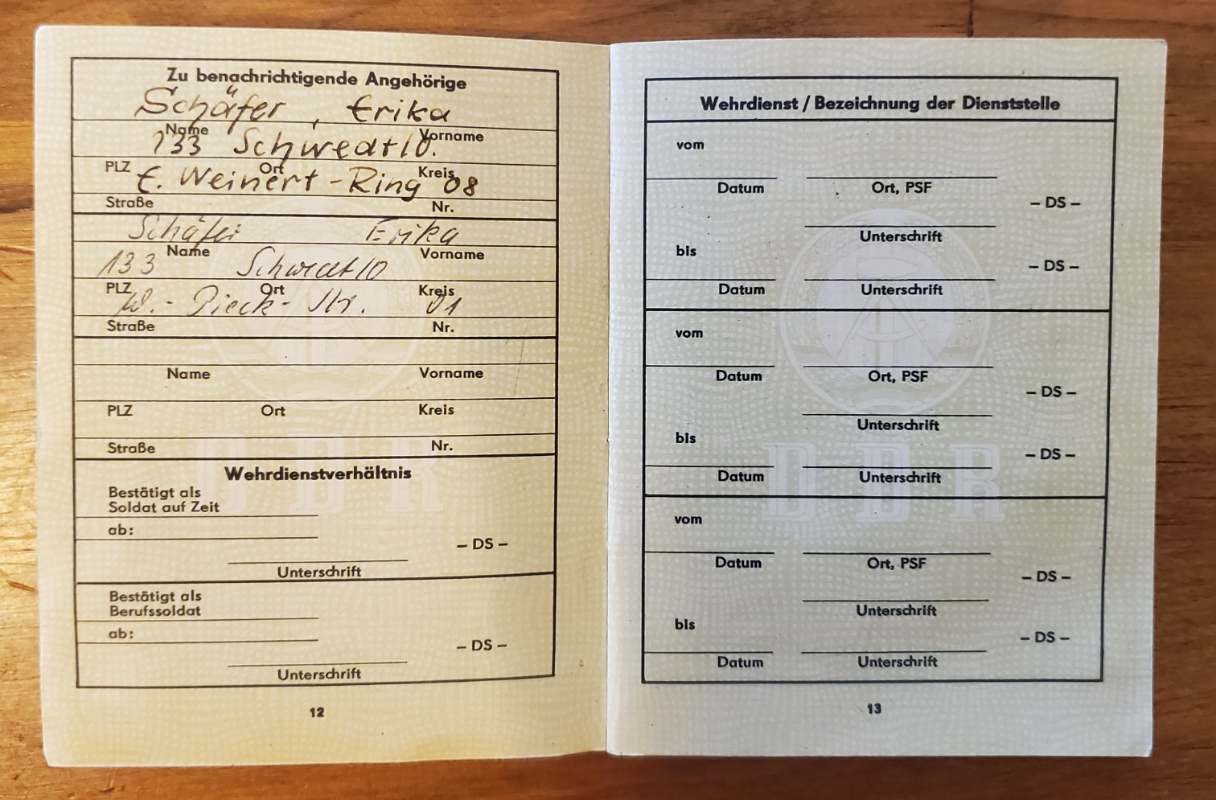 Zu benachrichtigende Angehörige
Schäfer, Erika
Name Vorname
133 Schwedt/O.
PLZ Ort Kreis
E. Weinert-Ring 08
Straße Nr.
Schäfer Erika
Name Vorname
133 Schwedt/O
PLZ Ort Kreis
W.-Pieck-Str. 01
Straße Nr.
Name Vorname
PLZ Ort Kreis
Straße Nr.
Wehrdienstverhältnis
Bestätigt als
Soldat auf Zeit
ab:
– DS –
Unterschrift
Bestätigt als
Berufssoldat
ab:
– DS –
Unterschrift
DDR
12
Wehrdienst / Bezeichnung der Dienststelle
vom
Datum Ort, PSF
– DS –
Unterschrift
bis
– DS –
Datum Unterschrift
vom
Datum Ort, PSF
– DS –
Unterschrift
bis
– DS –
Datum Unterschrift
DDR
vom
Datum Ort, PSF
– DS –
Unterschrift
bis
– DS –
Datum Unterschrift
13